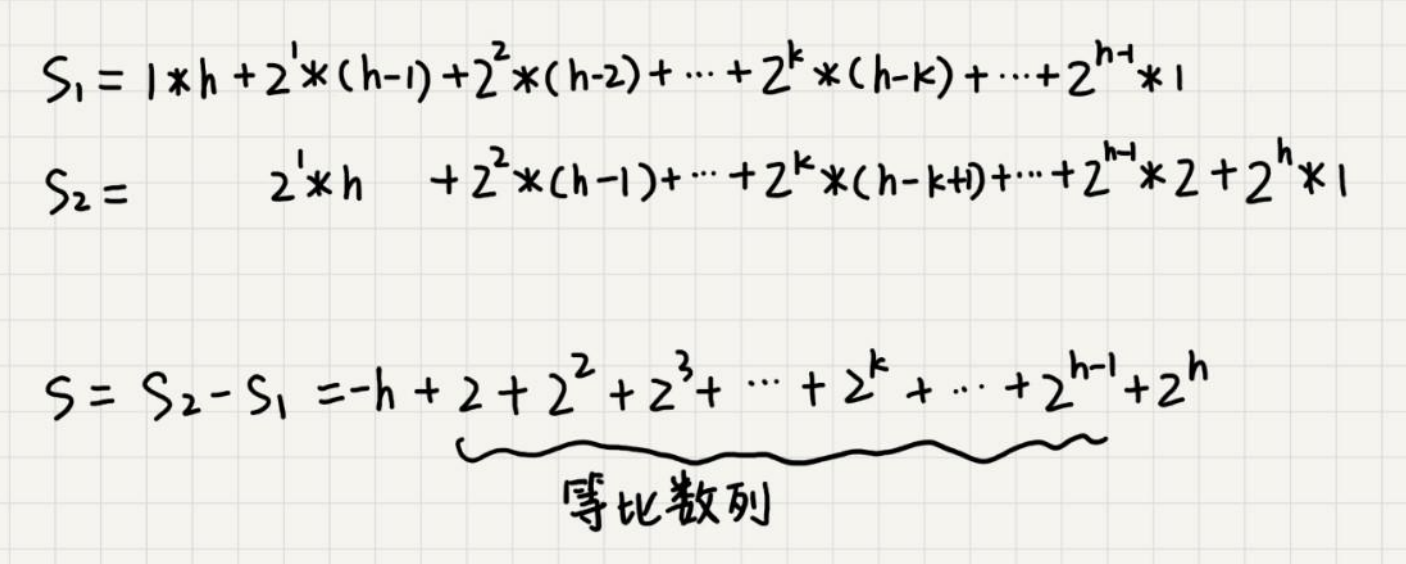 S₁ = 1*h + 2¹*(h-1) + 2²*(h-2) + ··· + 2ᵏ*(h-k) + ··· + 2ʰ⁻¹*1
S₂ = 2¹*h + 2²*(h-1) + ··· + 2ᵏ*(h-k+1) + ··· + 2ʰ⁻¹*2 + 2ʰ*1
S = S₂ - S₁ = -h + 2 + 2² + 2³ + ··· + 2ᵏ + ··· + 2ʰ⁻¹ + 2ʰ
等比数列